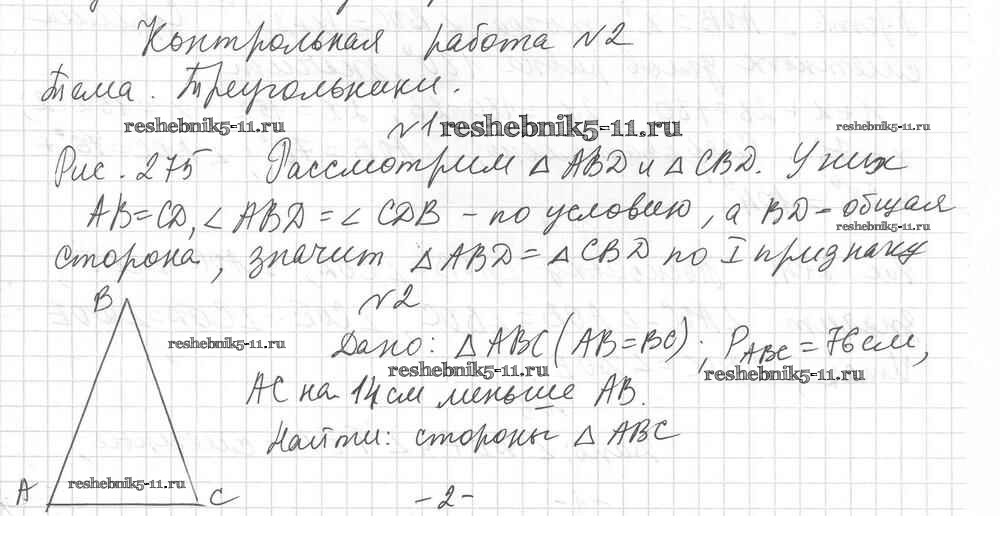 Контрольная работа №2
Тема. Треугольники.
reshebnik5-11.ru
№1 reshebnik5-11.ru
reshebnik5-11.ru
Рис. 275 Рассмотрим △ ABD и △ CBD. У них
AB=CD, ∠ ABD = ∠ CDB - по условию, а BD - общая
reshebnik5-11.ru
сторона, значит △ ABD = △ CBD по I признаку
B
№2
reshebnik5-11.ru
Дано: △ ABC (AB=BC); P_ABC = 76 см,
reshebnik5-11.ru
reshebnik5-11.ru
AC на 14 см меньше AB.
Найти: стороны △ ABC
reshebnik5-11.ru
A C
-2-